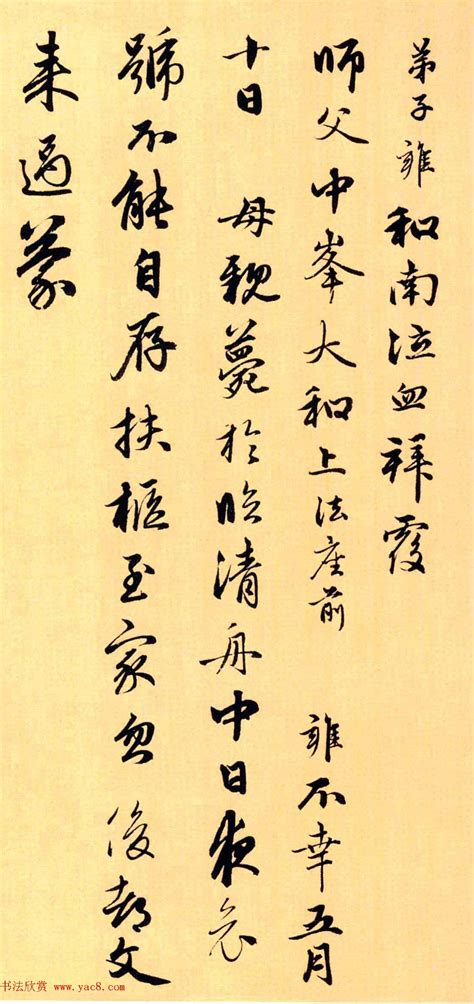 弟子雍和南泣血拜覆
師父中峯大和上法座前 雍不幸五月
十日 母親薨於臨清舟中日夜哀
號不能自存扶柩至家忽 後都文
来過蒙
书法欣赏 www.yac8.com